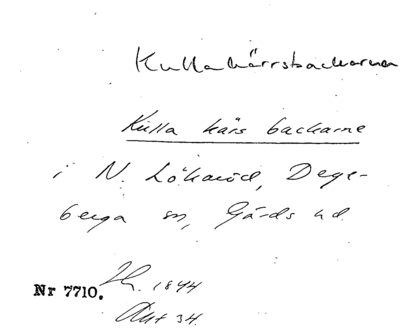 Kullakärrsbackarna
Kulla kärs backarne
i N. Lökaröd, Dege-
berga sn, Gärds hd.
1844
Nr 7710. Akt 34.